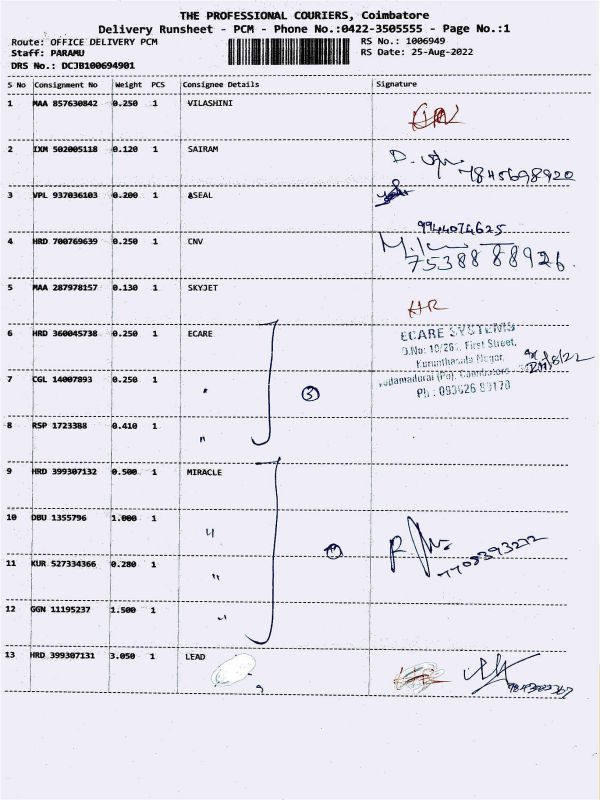 THE PROFESSIONAL COURIERS, Coimbatore
Delivery Runsheet - PCM - Phone No.:0422-3505555 - Page No.:1
Route: OFFICE DELIVERY PCM RS No.: 1006949
Staff: PARAMU RS Date: 25-Aug-2022
DRS No.: DCJB100694901
S No Consignment No Weight PCS Consignee Details Signature
1 MAA 857630842 0.250 1 VILASHINI
2 IXM 502005118 0.120 1 SAIRAM
7845698920
3 VPL 937036103 0.200 1 ASEAL
9944074625
4 HRD 700769639 0.250 1 CNV
75388 88926.
5 MAA 287978157 0.130 1 SKYJET
6 HRD 360045738 0.250 1 ECARE
ECARE SYSTEMS
D.No: 10/267, First Street,
Nagar,
7 CGL 14007893 0.250 1 " 3
Coimbatore
Ph : 093626 83170
8 RSP 1723388 0.410 1 "
9 HRD 399307132 0.500 1 MIRACLE
10 DBU 1355796 1.000 1 "
11 KUR 527334366 0.280 1 "
12 GGN 11195237 1.500 1 "
13 HRD 399307131 3.050 1 LEAD